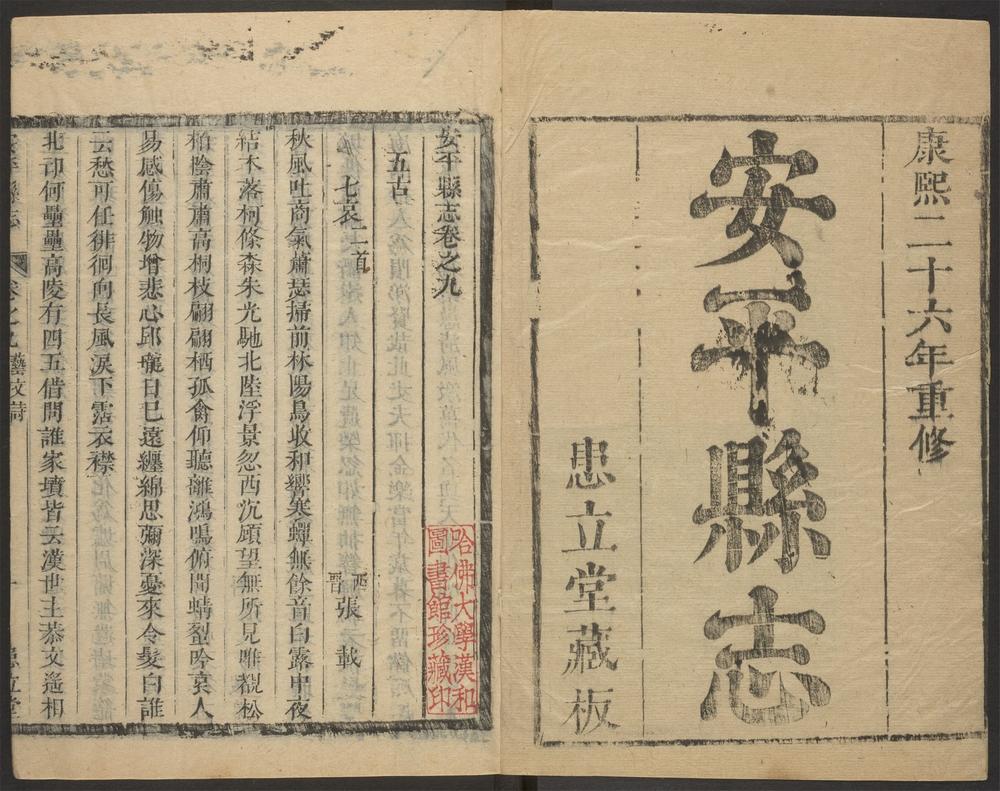 康熙二十六年重修
安平縣志
患立堂藏板
安平縣志卷之九
五古
七哀二首
西晉張載
秋風吐商氣蕭瑟掃前林陽鳥收和響寒蟬無餘音白露中夜
結木落柯條森朱光馳北陸浮景忽西沉顧望無所見唯覩松
柏陰肅肅高桐枝翩翩栖孤禽仰聽離鴻鳴俯聞蜻蛚吟哀人
易感傷觸物增悲心邱隴日已遠纏綿思彌深憂來令髮白誰
云愁可任徘徊向長風淚下霑衣襟
北邙何壘壘高陵有四五借問誰家墳皆云漢世主恭文遙相
安平縣志
卷之九 藝文詩
一
患立堂
哈佛大學漢和
圖書館珍藏印